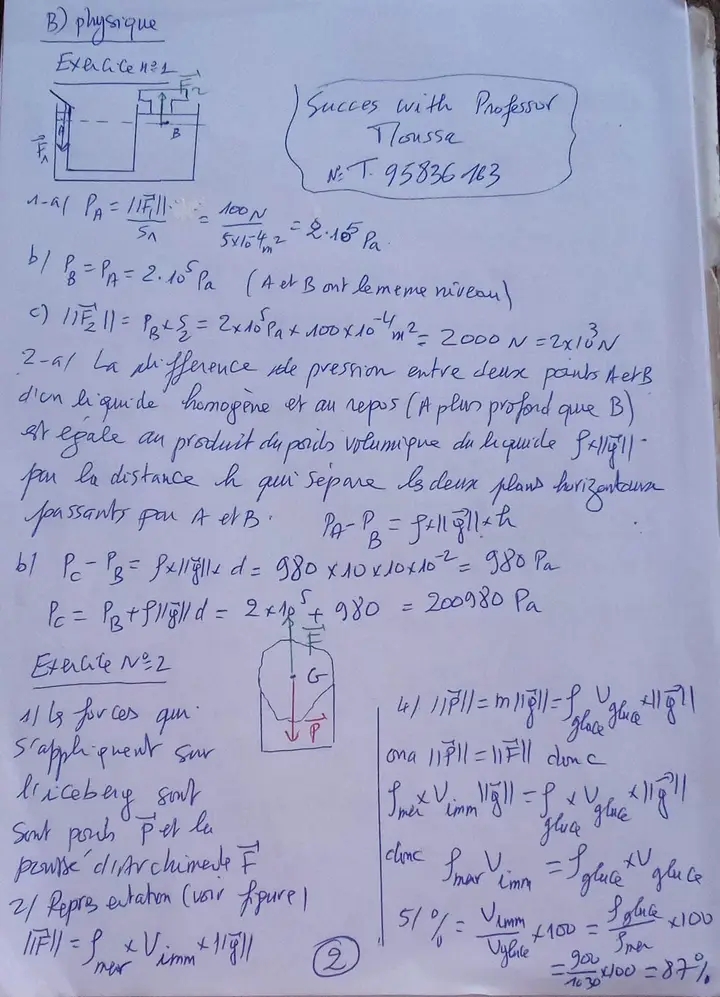 B) physique
Exercice n°1
F2
A
B
F1
Succes with Professor
Moussa
N: T. 95836163
1-a/ PA = ||F1|| / S1 = 100 N / 5x10^-4 m^2 = 2.10^5 Pa
b/ PB = PA = 2.10^5 Pa (A et B ont le meme niveau)
c) ||F2|| = PB x S2 = 2x10^5 Pa x 100x10^-4 m^2 = 2000 N = 2x10^3 N
2-a/ La difference de pression entre deux points A et B
d'un liquide homogène et au repos (A plus profond que B)
est égale au produit du poids volumique du liquide ρx||g||
par la distance h qui sépare les deux plans horizontaux
passants par A et B. PA - PB = ρx||g||xh
b/ PC - PB = ρx||g||x d = 980 x 10 x 10x10^-2 = 980 Pa
PC = PB + ρ||g|| d = 2x10^5 + 980 = 200980 Pa
Exercice N°2
F
G
P
1) les forces qui
s'appliquent sur
l'iceberg sont
sont poids P et la
poussé d'Archimente F
2/ Representation (voir figure)
||F|| = ρmer x Vimm x ||g||
4/ ||P|| = m||g|| = ρglace Vglace x ||g||
ona ||P|| = ||F|| donc
ρmer x Vimm ||g|| = ρglace x Vglace x ||g||
donc ρmer Vimm = ρglace x Vglace
5/ % = Vimm / Vglace x 100 = ρglace / ρmer x 100
= 900 / 1030 x 100 = 87%
2